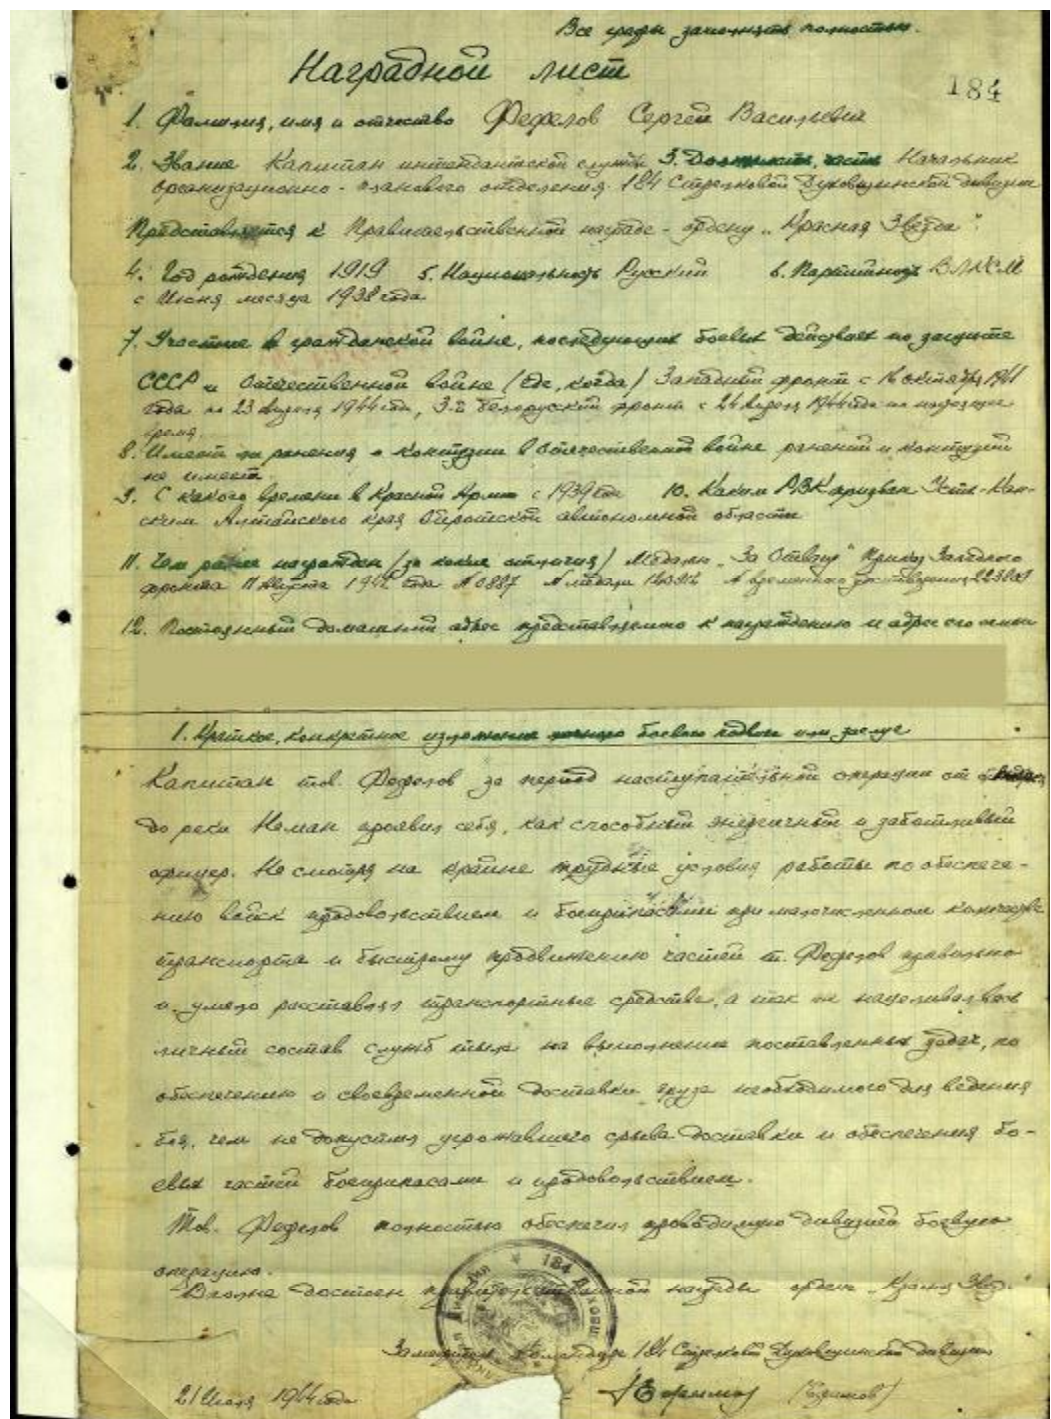 Все графы заполнять полностью.
Наградной лист
184
1. Фамилия, имя и отчество Фефелов Сергей Васильевич
2. Звание Капитан интендантской службы 3. Должность, часть Начальник
организационно-планового отделения 184 Стрелковой Духовщинской дивизии
Представляется к Правительственной награде - ордену „Красная Звезда".
4. Год рождения 1919 5. Национальность Русский 6. Партийность ВЛКСМ
с Июня месяца 1938 года
7. Участие в гражданской войне, последующих боевых действиях по защите
СССР и Отечественной войне (где, когда) Западный фронт с 16 октября 1941
года по 23 апреля 1944 года, 3-й Белорусский фронт с 24 апреля 1944 года по настоящее
время.
8. Имеет ли ранения и контузии в Отечественной войне ранений и контузий
не имеет
9. С какого времени в Красной Армии с 1939 год 10. Каким РВК призван Усть-Кан-
ским Алтайского края Ойротской автономной области
11. Чем ранее награжден (за какие отличия) Медаль „За Отвагу" Приказ Западного
фронта 11 августа 1942 года № 0887 № медали № временного удостоверения
12. Постоянный домашний адрес представляемого к награждению и адрес его семьи
1. Краткое, конкретное изложение личного боевого подвига или заслуг
Капитан тов. Фефелов за период наступательной операции от
до реки Неман проявил себя, как способный энергичный и заботливый
офицер. Не смотря на крайне трудные условия работы по обеспече-
нию войск продовольствием и боеприпасами при малочисленном количестве
транспорта и быстрому продвижению частей т. Фефелов правильно
и умело расставлял транспортные средства, а так же нацеливал весь
личный состав служб тыла на выполнение поставленных задач, по
обеспечению и своевременной доставки груза необходимого для ведения
боя, чем не допустил угрожавшего срыва доставки и обеспечения бо-
евых частей боеприпасами и продовольствием.
Тов. Фефелов полностью обеспечил проводимую дивизией боевую
операцию.
Вполне достоин правительственной награды орден „Красная Звезд."
Заместитель Командира 184 Стрелковой Духовщинской дивизии
21 Июля 1944 года (Ефимов)